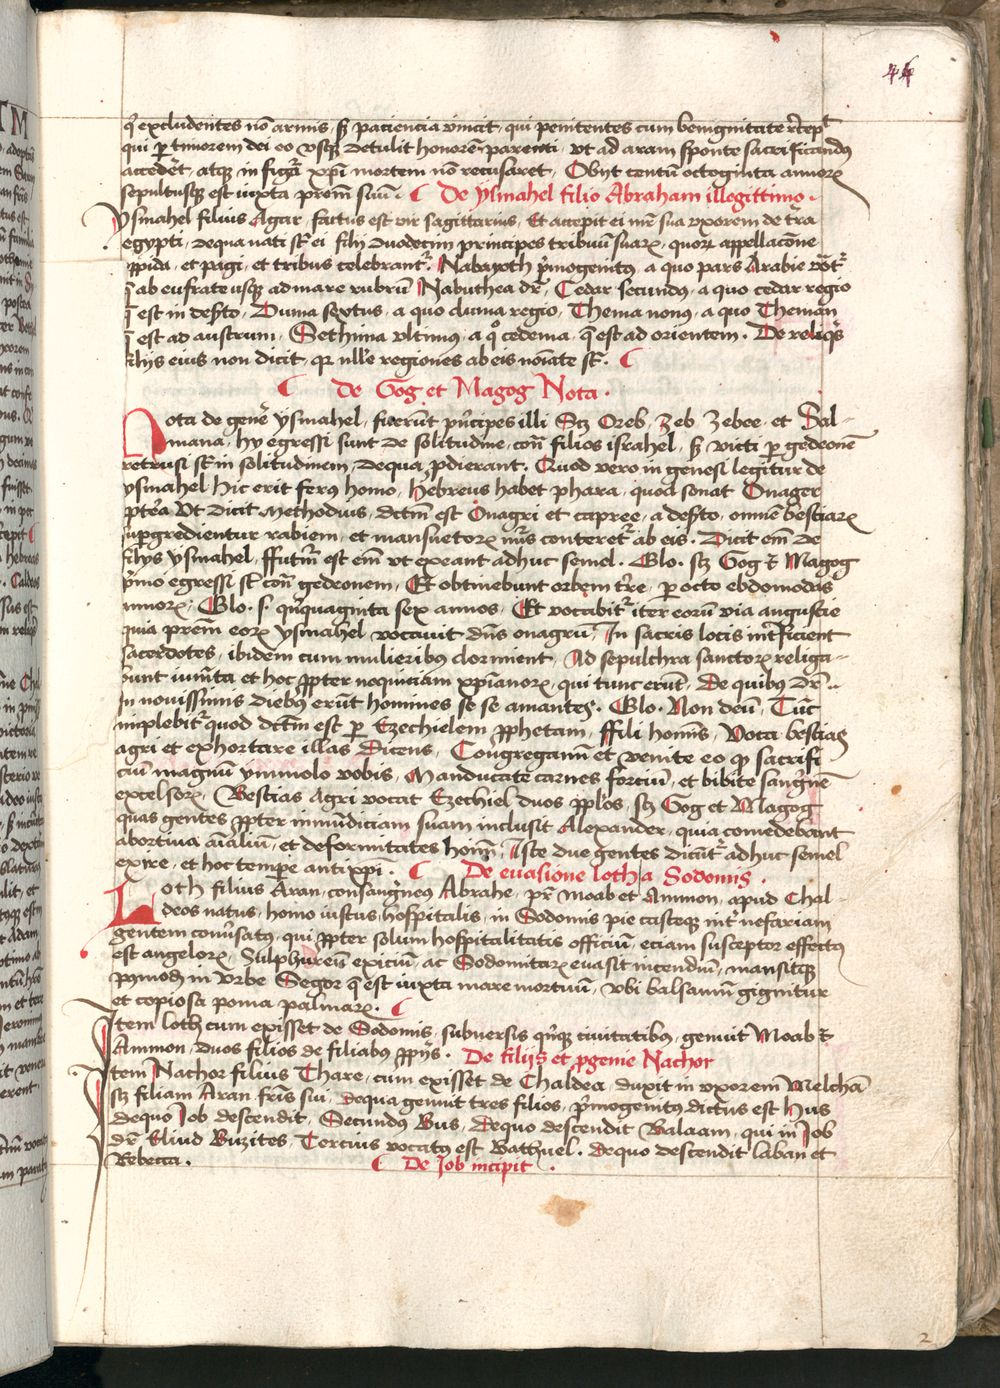 44
qͦ excludentes nō armis, sꝫ paciencia vincit, qui penitentes cum benignitate r̄cepᵗ
qui ꝑ timorem dei eo vsqꝫ detulit honorē parenti, vt ad aram sponte sacrificandꝰ
accedēt, atqꝫ in figūa xp̄i mortem nō recusaret, Obijt centū octoginta annoꝝ
sepultusqꝫ est iuxta prēm suū. De ysmahel filio Abraham illegittimo.
Ysmahel filius Agar, factus est vir sagittarius, Et accepit ei mr̄ sua vxorem de tr̄a
egypti, de qua nati st̄ ei filij duodecim principes tribuū suaꝝ, quoꝝ appellacōne
oppida, et pagi, et tribus celebrant᷑. Nabayoth p̄mogenitꝰ, a quo pars Arabie
q̄ ab eufrate usqꝫ ad mare rubrū Nabuthea dr̄, Cedar secundꝰ, a quo cedar regio
q̄ est in deserto, Duma sextus, a quo duma regio, Thema nonꝰ, a quo Theman
q̄ est ad austrum, Sethima vltimus, a qͦ cedema, q̄ est ad orientem. De reliqͥs
filijs eius non dicit, qr nulle regiones ab eis noīate st̄.
De Gog et Magog Nota.
Nota de genē ysmahel, fuerūt pn̄cipes illi Scꝫ Oreb, Zeb Zebee, et Sal-
mana, hij egressi sunt de solitudine, cont̄ filios israhel, sꝫ victi ꝑ gedeonē
retrusi st̄ in solitudinem, de qua ꝓdierant. Quod vero in genesi legitur de
ysmahel hic erit ferꝰ homo, hebreus habet phara, quod sonat Onager
pt̄ea Vt dicit Methodius, dc̄tm est Onagri et capree, a deserto, omnē bestiaꝝ
suꝑgredientur rabiem, et mansuetoꝝ nūs conteret᷑ ab eis. Dicit em̄ de
filijs ysmahel, ffutm̄ est em̄ vt exeant adhuc semel. Glo. scꝫ Gog et Magog
p̄mo egressi st̄ cont̄ gedeonem, Et obtinebunt orbem tr̄re, ꝑ octo ebdomodas
annoꝝ, Glo. s. qn̄quaginta sex annos, Et vocabit᷑ iter eorū via angustie
quia prēm eoꝝ ysmahel, vocauit dn̄s onagrū, In sacris locis int̄ficient
sacerdotes, ibidem cum mulieribꝰ dormient, Ad sepulchra sanctoꝝ religa-
bunt iumēta et hoc ꝓpter nequiciam xp̄ianoꝝ, qui tunc erūt, De quibꝰ dr̄
In nouissimis diebꝰ erūt homines se se amantes. Glo. Non deū, Tūc
implebit᷑ quod dc̄tm est ꝑ Ezechielem ꝓphetam, ffili homīs, Voca bestias
agri et exhortare illas dicens, Congregamī et venite eo qꝫ sacrifi
ciū magnū ymmolo vobis, Manducate carnes forciū, et bibite sanguīe
excelsoꝝ, Bestias Agri vocat Ezechiel duos pp̄los, scꝫ Gog et Magog
quas gentes ꝓpter inmūdiciam suam inclusit Alexander, quia comedebant
abortiua aīaliū, et deformitates homī, Iste due gentes dicūt᷑ adhuc semel
exire, et hoc tempe antixpī. De euasione loth a Sodomis.
Loth filius Aran, consangͥneꝰ Abrahe, pr̄ moab et Ammon, apud Chal-
deos natus, homo iustus, hospitalis, in Sodomis pie casteqꝫ int̄ nefariam
gentem conūsatꝰ, qui ꝓpter solum hospitalitatis officiū, eciam susceptor effectꝰ
est angeloꝝ, Sulphureū exiciū, ac Sodomitaꝝ euasit incendiū, mansitqꝫ
in vrbe Segor q̄ est iuxta mare mortuū, vbi balsamū gignitur
et copiosa poma palmaꝝ.
Item loth cum exisset de Sodomis, subuersis qn̄qꝫ ciuitatibus, genuit Moab et
Ammon, duos filios de filiabꝰ ꝓpijs. De filijs et ꝓgenie Nachor
Item Nachor filius Thare, cum exisset de Chaldea, duxit in vxorem Melchā
scꝫ filiam Aran fr̄is sui, de qua genuit tres filios, p̄mogenitꝰ dictus est Hus
de quo Iob descendit, Secundꝰ Bus, de quo descendit Balaam, qui in Iob
dr̄ Eliud Buzites, Tercius vocatꝰ est Bathuel. de quo descendit laban et
Rebecca.
De Job incipit.
2